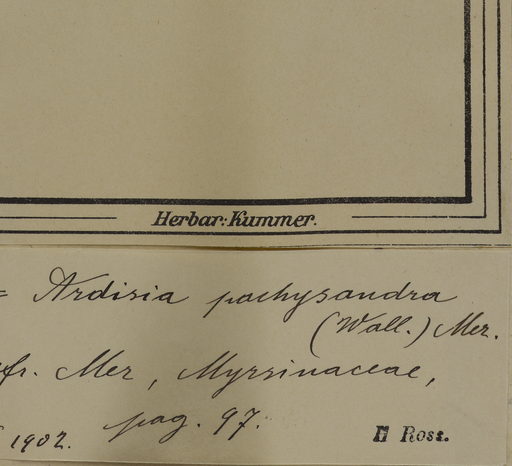 Herbar: Kummer.
= Ardisia pachysandra
(Wall.) Mez.
cfr. Mez, Myrsinaceae,
pag. 97.
1902.
H Ross.